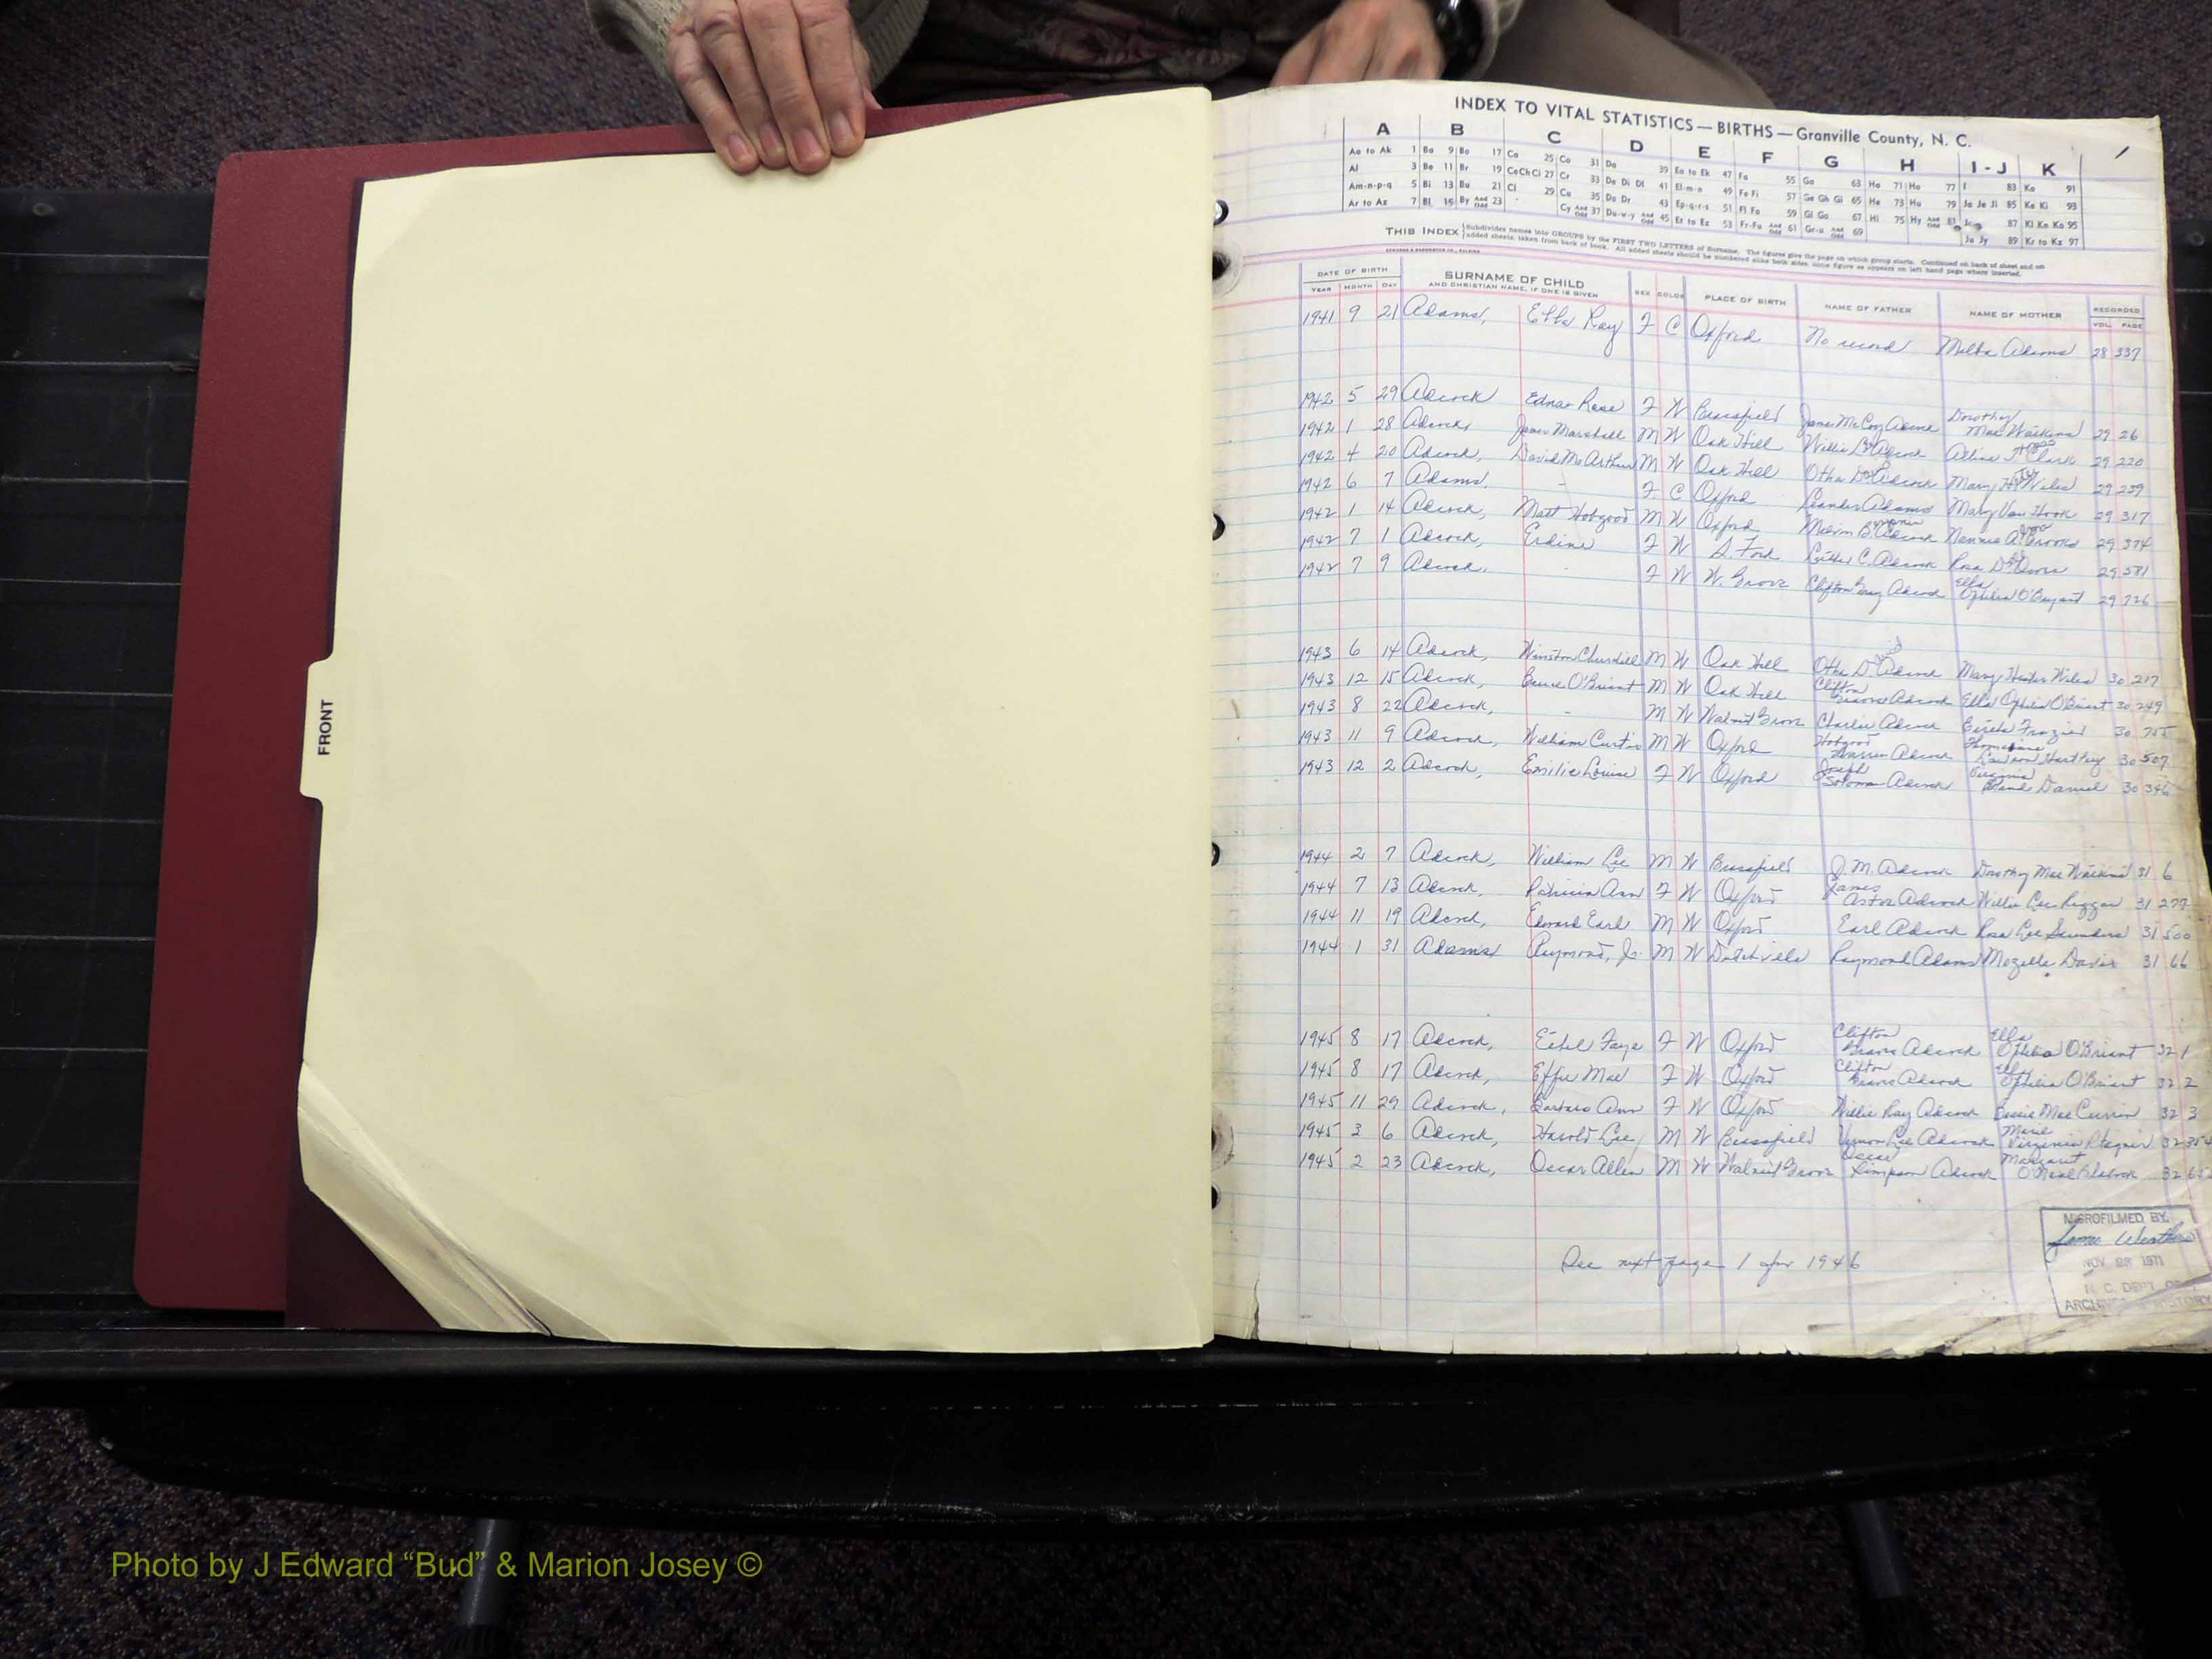 FRONT
INDEX TO VITAL STATISTICS — BIRTHS — Granville County, N. C.
A B C D E F G H I - J K
Aa to Ak 1 Ba 9 Bo 17 Ca 25 Co 31 Da 39 Ea to Ek 47 Fa 55 Ga 63 Ha 71 Ho 77 I 83 Ka 91
Al 3 Be 11 Br 19 CeChCi 27 Cr 33 De Di Dl 41 El-m-n 49 Fe Fi 57 Ge Gh Gi 65 He 73 Hu 79 Ja Je Ji 85 Ke Ki 93
Am-n-p-q 5 Bi 13 Bu 21 Cl 29 Cu 35 Do Dr 43 Ep-q-r-s 51 Fl Fo 59 Gl Go 67 Hi 75 Hy And Odd 81 Jo 87 Kl Kn Ko 95
Ar to Az 7 Bl 15 By And Odd 23 Cy And Odd 37 Du-v-y And Odd 45 Et to Ez 53 Fr-Fu And Odd 61 Gr-u And Odd 69 Ju Jy 89 Kr to Kz 97
THIS INDEX Subdivides names into GROUPS by the FIRST TWO LETTERS of Surname. The figures give the page on which group starts. Continued on back of sheet and on
added sheets, taken from back of book. All added sheets should be numbered alike both sides, same figure as appears on left hand page where inserted.
DATE OF BIRTH SURNAME OF CHILD SEX COLOR PLACE OF BIRTH NAME OF FATHER NAME OF MOTHER RECORDED
YEAR MONTH DAY AND CHRISTIAN NAME, IF ONE IS GIVEN VOL. PAGE
1941 9 21 Adams, Ray F C Oxford No record Melba Adams 28 337
1942 5 29 Adcock Edna Rose F W Brassfield James McCoy Adcock Dorothy Mae Watkins 29 26
1942 1 28 Adcock, James Marshall M W Oak Hill Willie Adcock Clark 29 220
1942 4 20 Adcock, David McArthur M W Oak Hill Otha Adcock Mary Wiles 29 239
1942 6 7 Adams, - F. C Oxford Leander Adams Mary Van Hook 29 317
1942 1 14 Adcock, Matt Hobgood M W Oxford Melvin B. Adcock Nannie Brooks 29 374
1942 7 1 Adcock, Erdine F W S. Fork Luther C. Adcock Rosa Owen 29 581
1942 7 9 Adcock, - F W W. Grove Clifton Adcock Ella Ophelia O'Bryant 29 726
1943 6 14 Adcock, Winston Churchill M W Oak Hill Otha David Adcock Mary Hester Wiles 30 217
1943 12 15 Adcock, O'Briant M W Oak Hill Clifton Adcock Ella Ophelia O'Briant 30 249
1943 8 22 Adcock, - M W Walnut Grove Charlie Adcock Frazier 30
1943 11 9 Adcock, William Curtis M W Oxford Hobgood Warren Adcock 30 507
1943 12 2 Adcock, Emilie Louise F W Oxford Joseph Solomon Adcock Virginia Bland Daniel 30 346
1944 2 7 Adcock, William Lee M W Brassfield J. M. Adcock Dorothy Mae Watkins 31 6
1944 7 13 Adcock, Patricia Ann F W Oxford James Astor Adcock Willie Lee Riggan 31 277
1944 11 19 Adcock, Edward Earl M W Oxford Earl Adcock Rosa Lee Saunders 31 500
1944 1 31 Adams Raymond, Jr. M W Dutchville Raymond Adams Mozelle Davis 31 66
1945 8 17 Adcock, Ethel Faye F W Oxford Clifton Adcock Ella Ophelia O'Briant 32 1
1945 8 17 Adcock, Effie Mae F W Oxford Clifton Adcock Ella Ophelia O'Briant 32 2
1945 11 29 Adcock, Barbara Ann F W Oxford Willie Ray Adcock Bessie Mae Currin 32 3
1945 3 6 Adcock, Harold Lee M W Brassfield Vernon Lee Adcock Marie Virginia 32
1945 2 23 Adcock, Oscar Allen M W Walnut Grove Oscar Simpson Adcock Margaret O'Neal Blalock 32
See next page 1 for 1946
MICROFILMED BY
NOV 1971
N. C. DEPT OF
ARCHIVES & HISTORY
Photo by J Edward “Bud” & Marion Josey ©